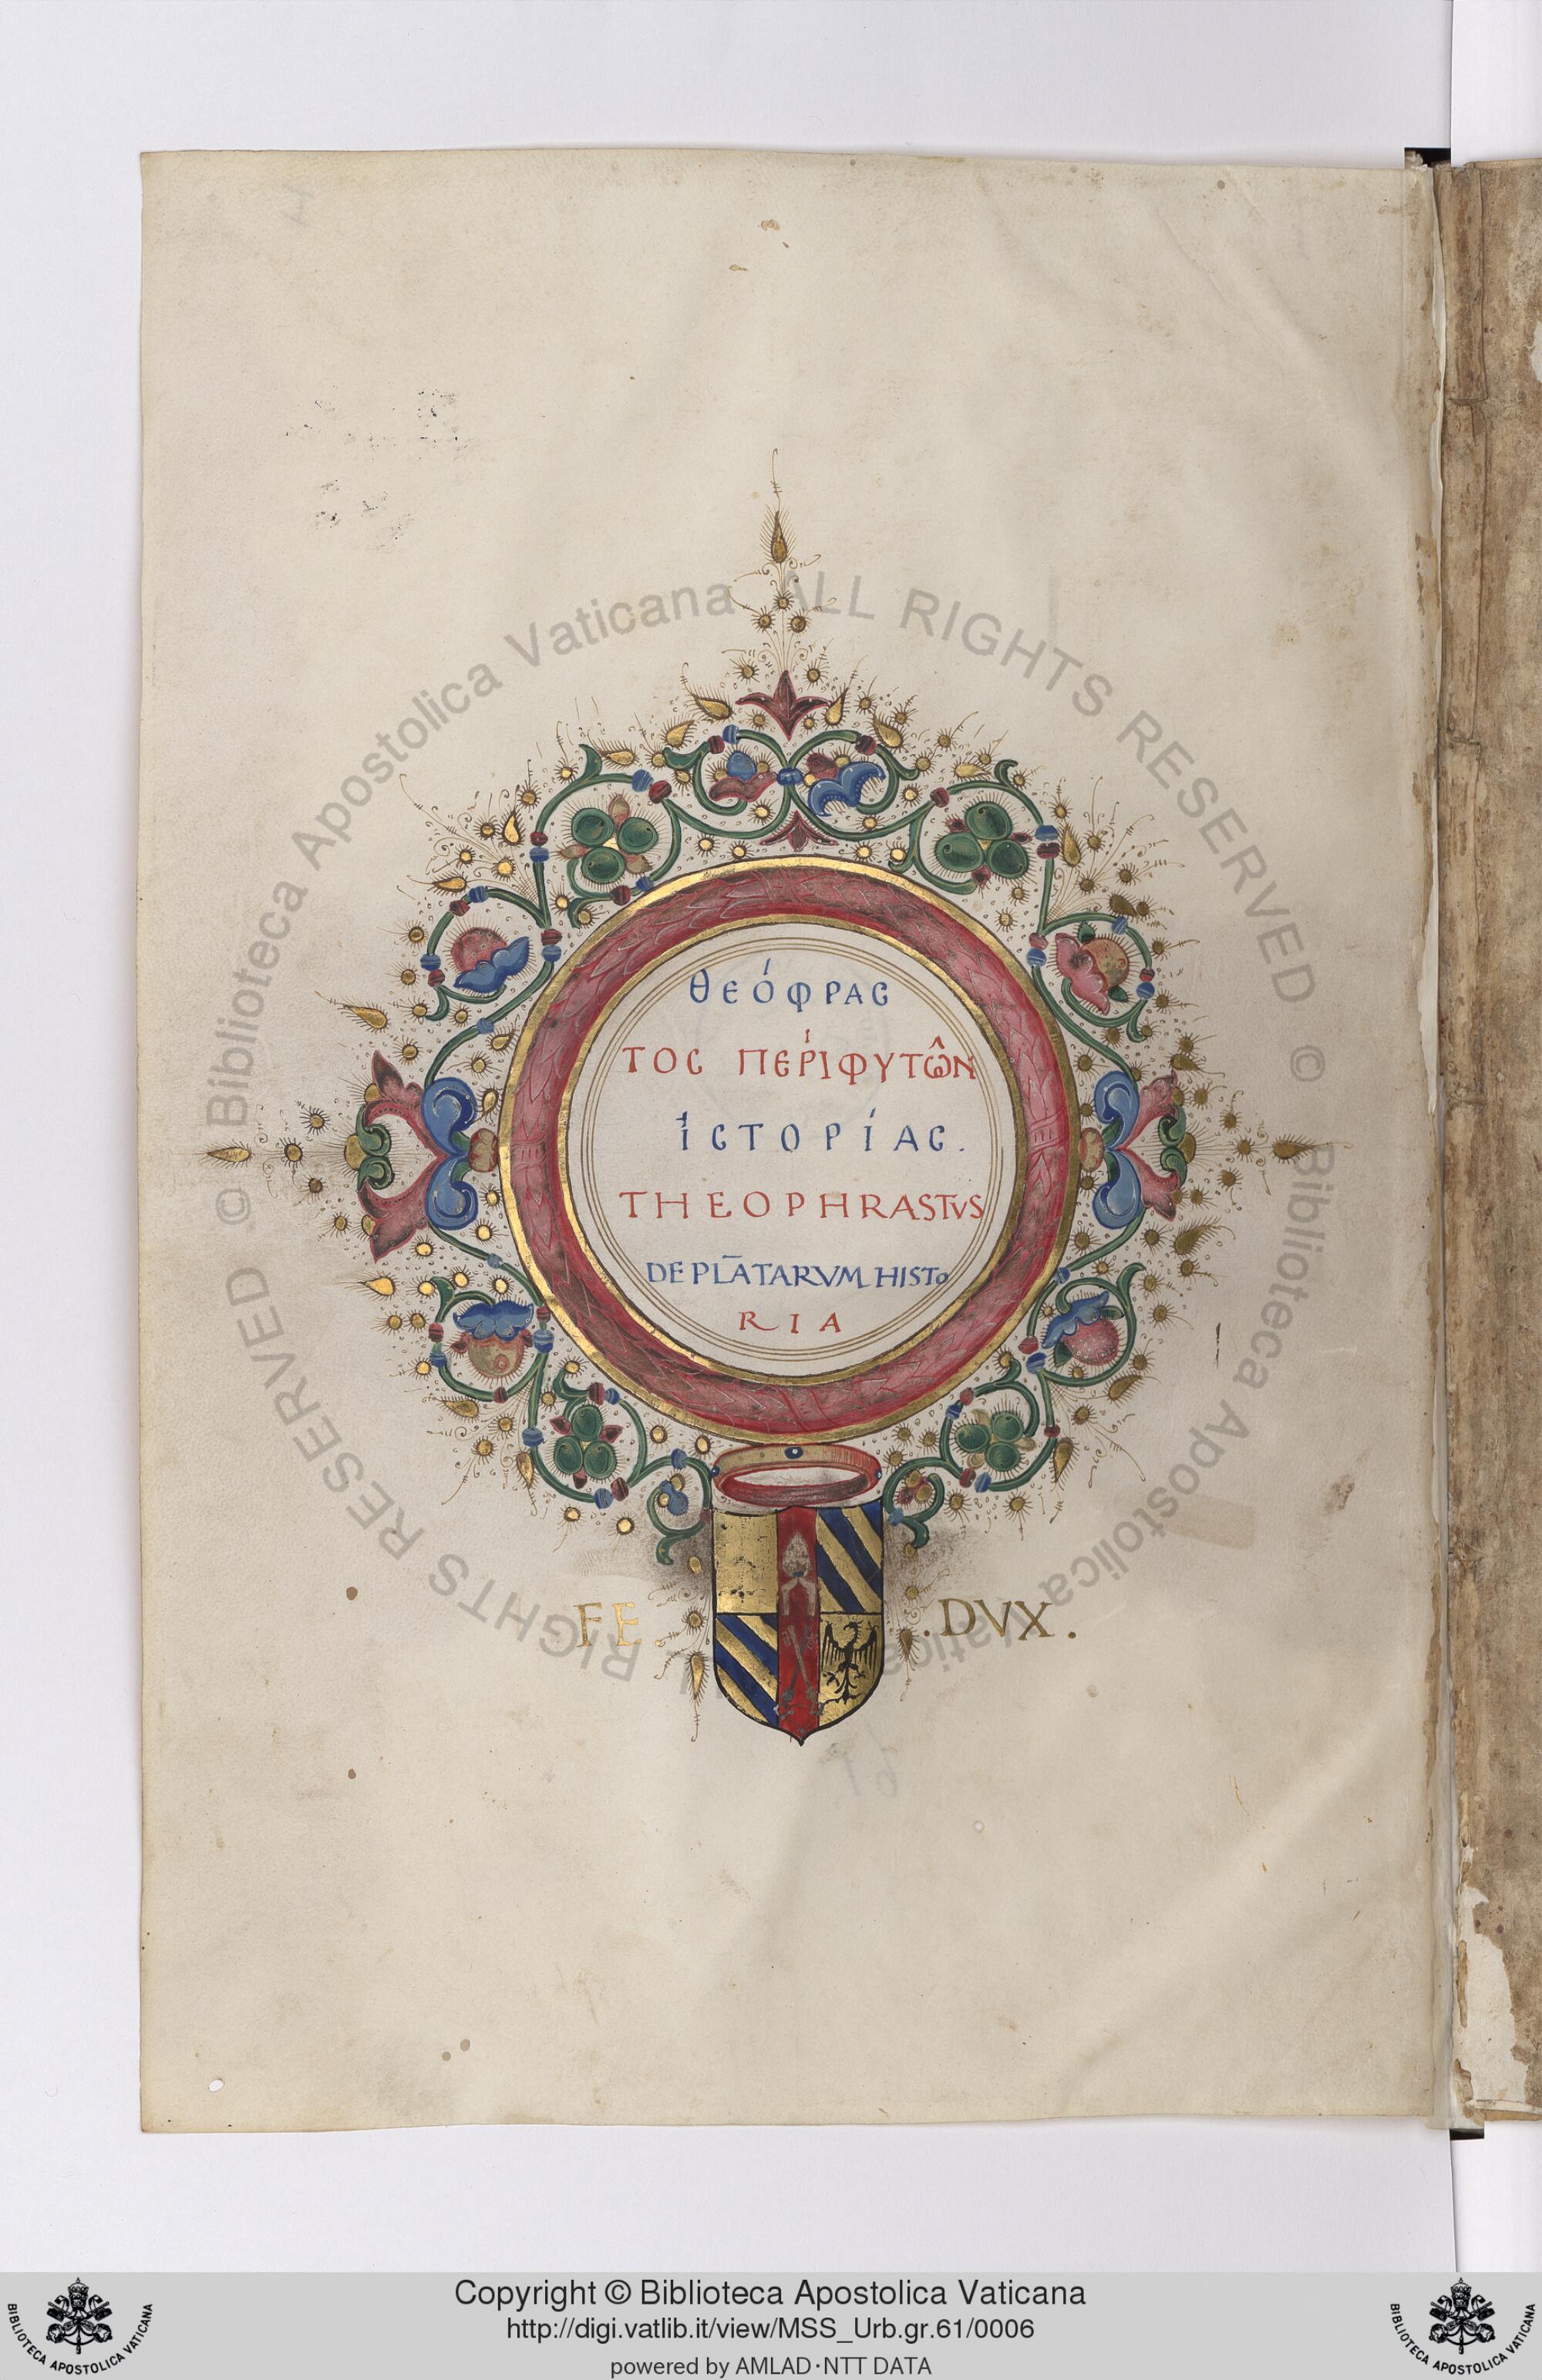 θεόφρας
τος περίφυτῶν
ἱςτορίας.
THEOPHRASTVS
DE PLĀTARVM HISTO
RIA
.FE. .DVX.
© Biblioteca Apostolica Vaticana ALL RIGHTS RESERVED © Biblioteca Apostolica Vaticana ALL RIGHTS RESERVED
Copyright © Biblioteca Apostolica Vaticana
http://digi.vatlib.it/view/MSS_Urb.gr.61/0006
powered by AMLAD·NTT DATA
BIBLIOTECA APOSTOLICA VATICANA
BIBLIOTECA APOSTOLICA VATICANA